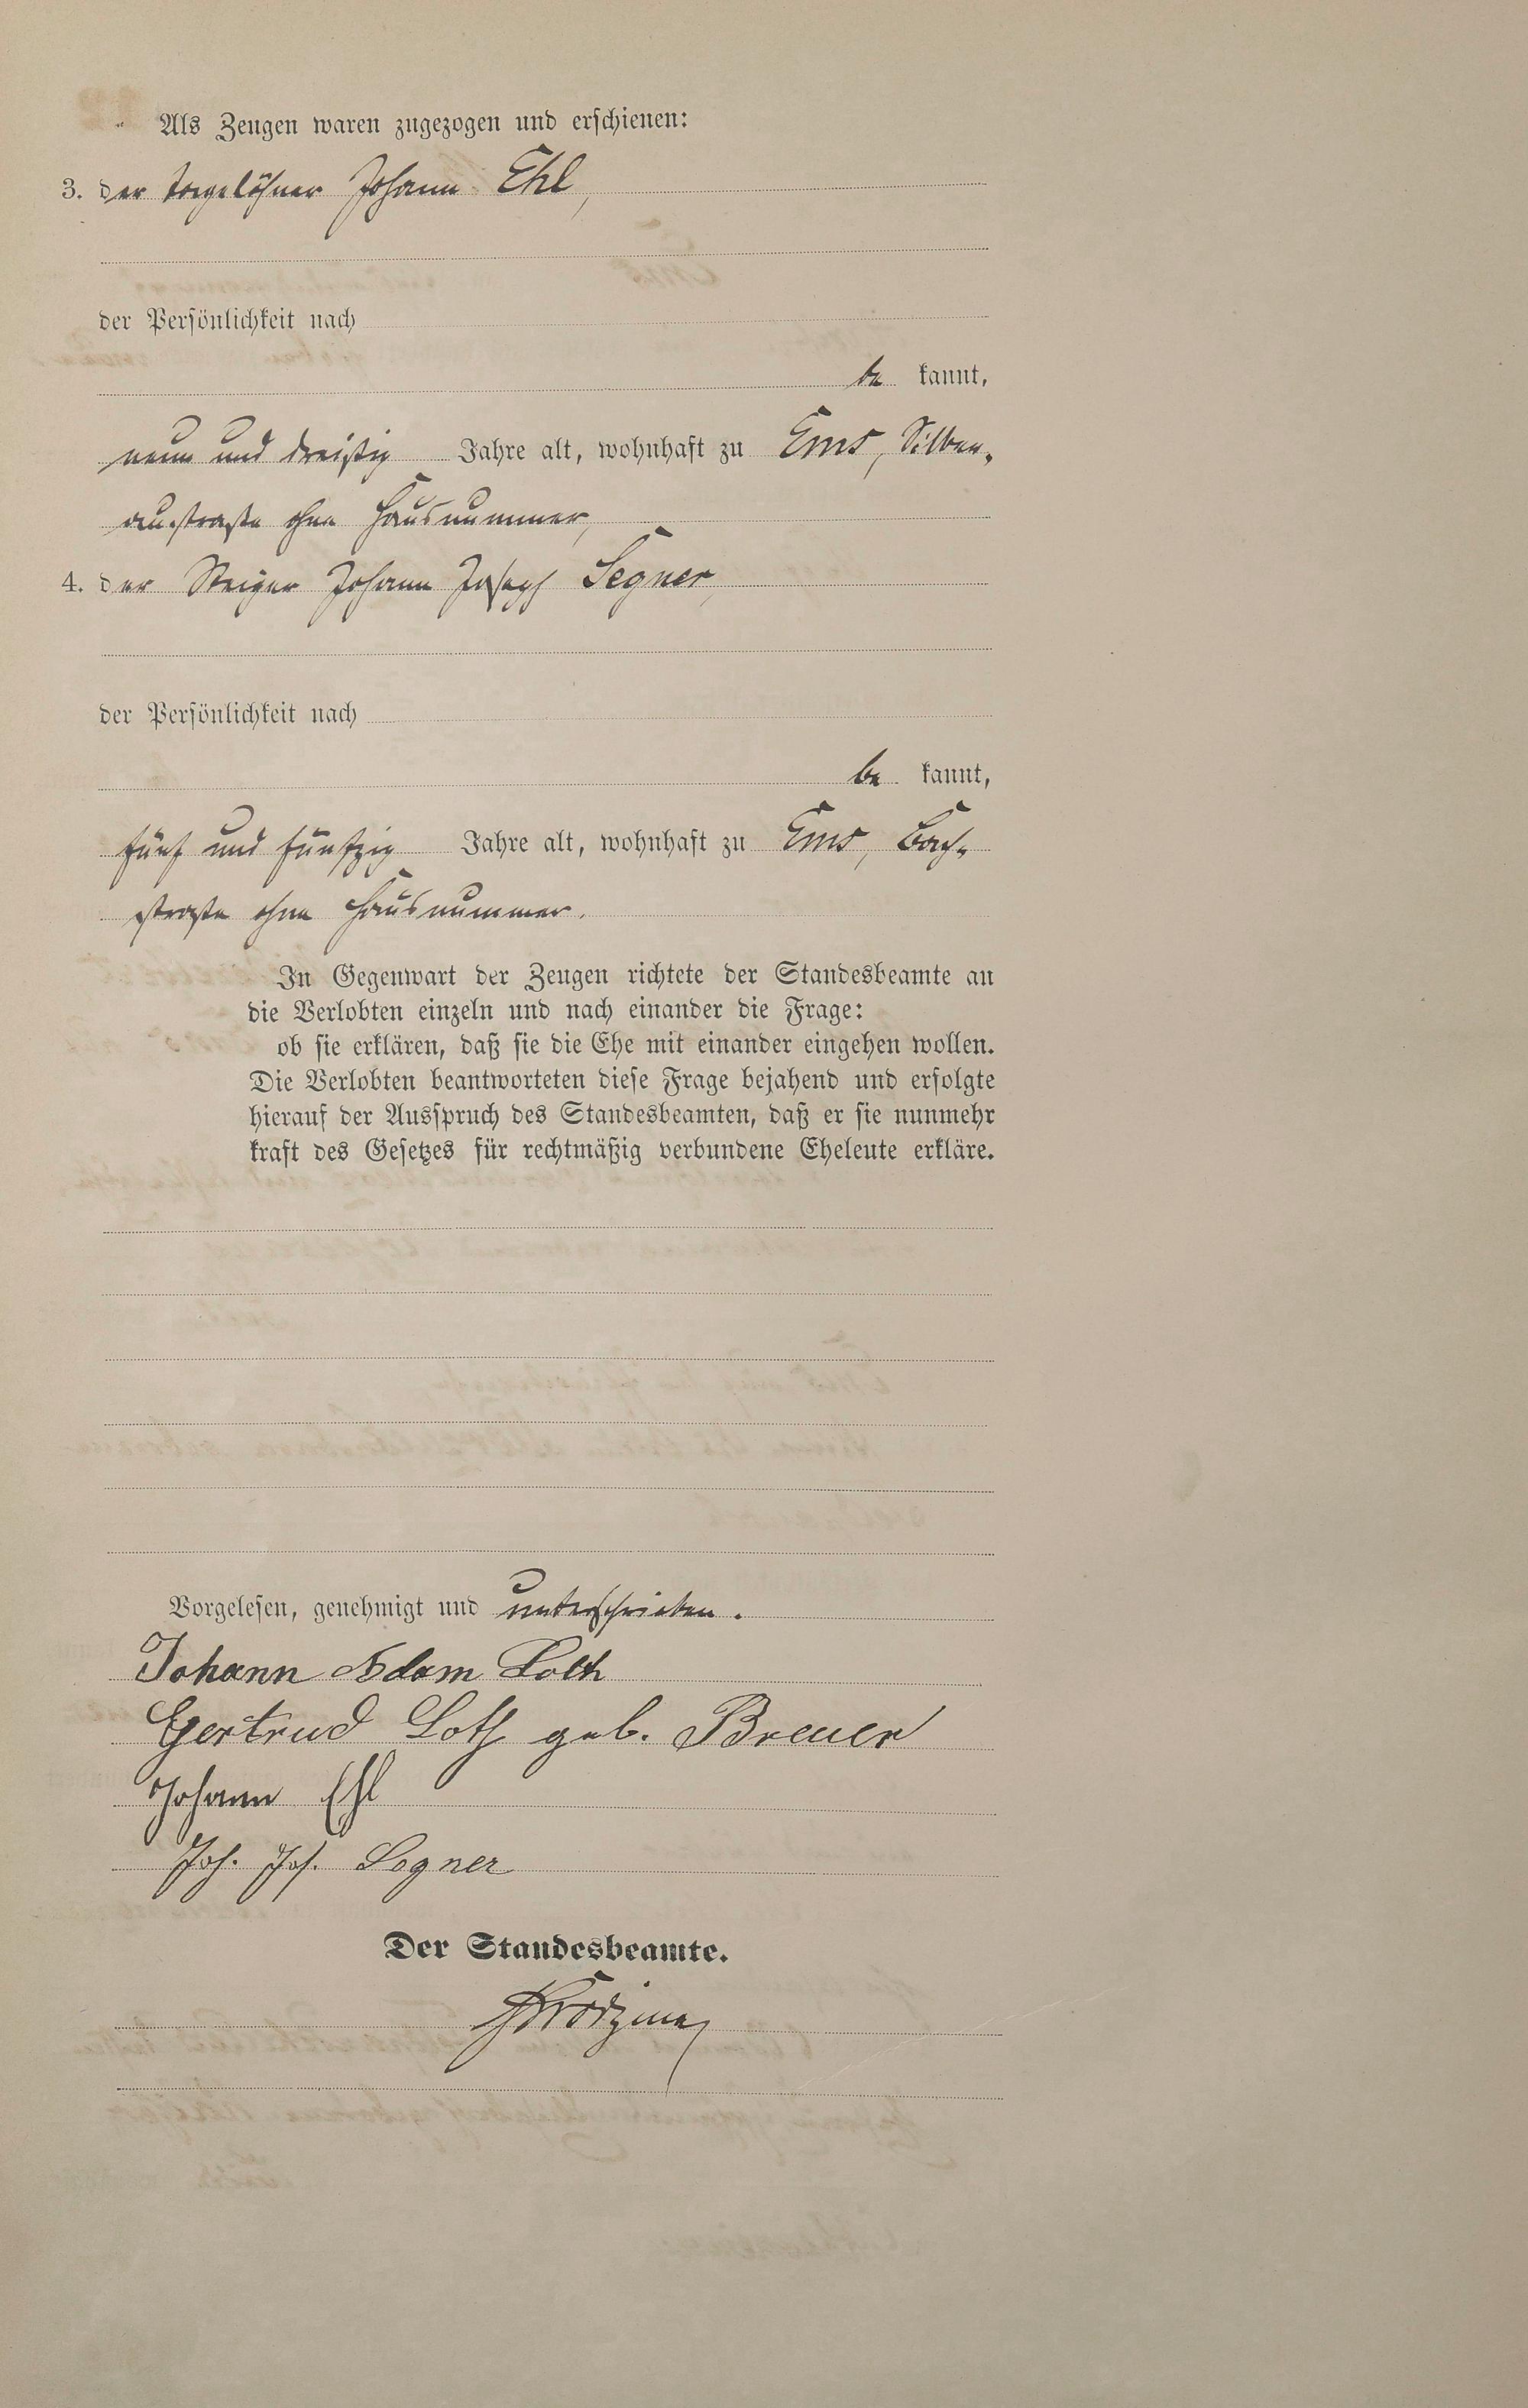 Als Zeugen waren zugezogen und erschienen:
3. der Tagelöhner Johann Ehl,
der Persönlichkeit nach
be kannt,
neun und dreißig Jahre alt, wohnhaft zu Ems, Silber-
au-straße ohne Hausnummer,
4. der Steiger Johann Joseph Segner,
der Persönlichkeit nach
be kannt,
fünf und fünfzig Jahre alt, wohnhaft zu Ems, Bach-
straße ohne Hausnummer.
In Gegenwart der Zeugen richtete der Standesbeamte an
die Verlobten einzeln und nach einander die Frage:
ob sie erklären, daß sie die Ehe mit einander eingehen wollen.
Die Verlobten beantworteten diese Frage bejahend und erfolgte
hierauf der Ausspruch des Standesbeamten, daß er sie nunmehr
kraft des Gesetzes für rechtmäßig verbundene Eheleute erkläre.
Vorgelesen, genehmigt und unterschrieben.
Johann Adam Loth
Gertrud Loth geb. Breuer
Johann Ehl
Joh. Jos. Segner
Der Standesbeamte.